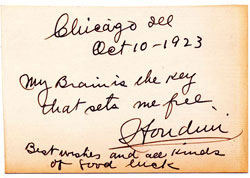 Chicago Ill
Oct 10-1923
My Brain is the key
that sets me free.
Houdini
Best wishes and all kinds
of good luck